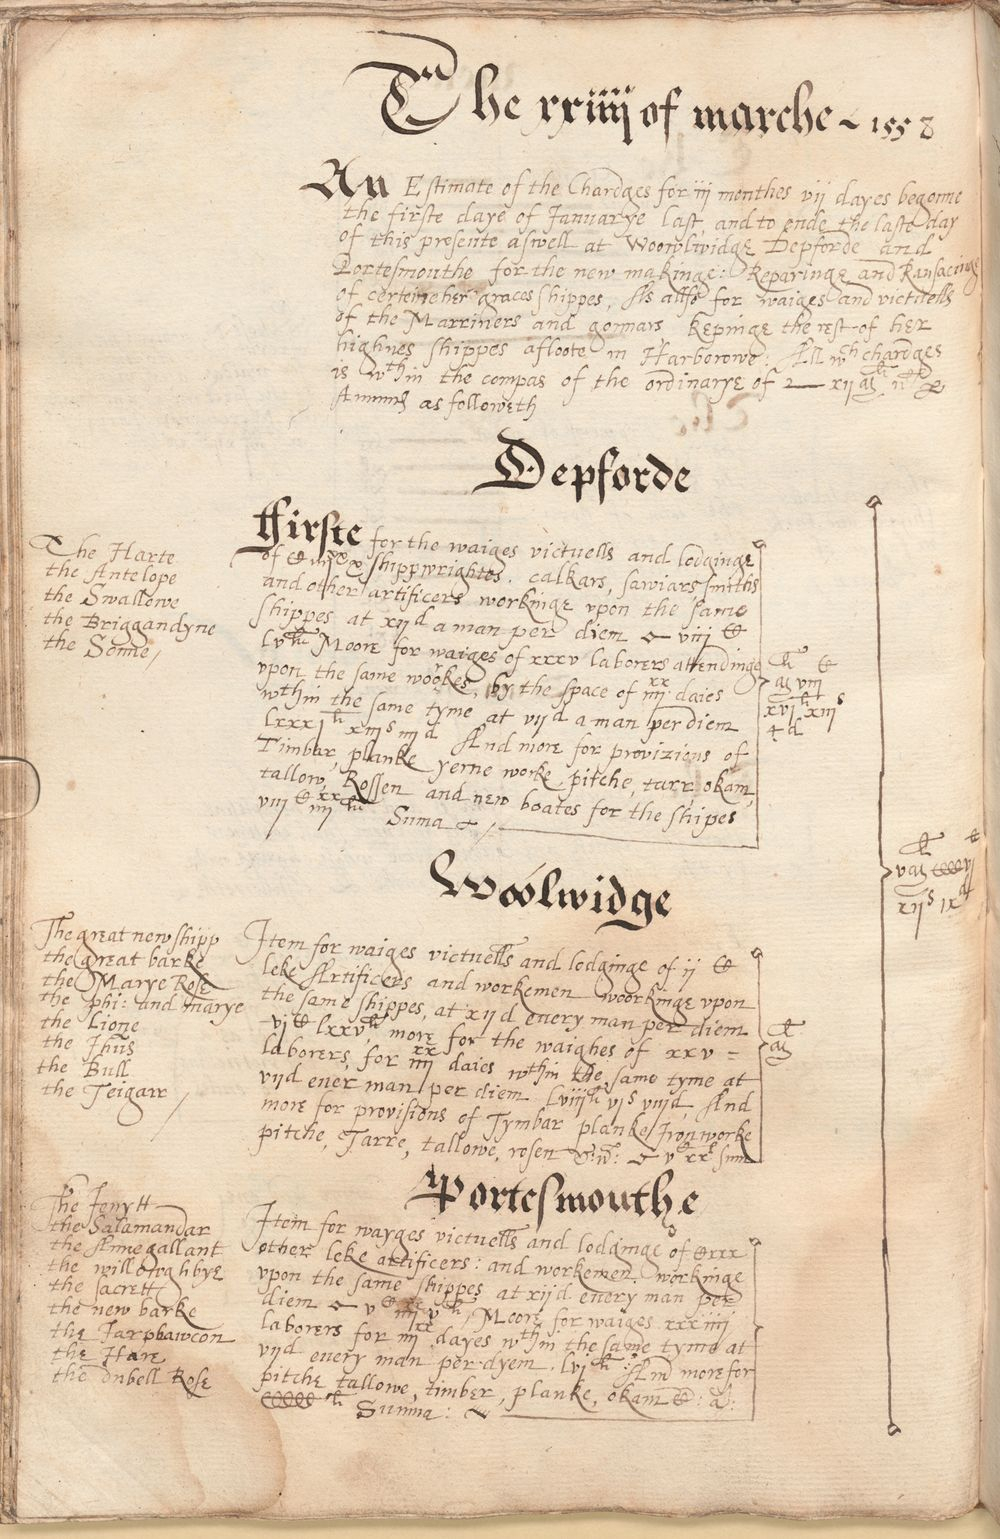 The xxiiij of marche ~ 1558
An Estimate of the Chardges for iij monthes vij dayes begonne
the firste daye of Januarye last, and to ende the laste day
of this presente aswell at Woowlwidge Depforde and
Portesmouthe for the new makinge: Reparinge and Ransacinge
of certeine her graces shippes, As allso for waiges and victuells
of the Marriners and gonnars kepinge the rest of her
highnes shippes afloote in Harborowe: All wch chardges
is wthin the compas of the ordinarye of xij
Annum as followeth
Depforde
The Harte
the Antelope
the Swallowe
the Briggandyne
the Sonne /
ffirste for the waiges victuells and lodginge
of shippwrightes, calkars, sawiars smithis
and other artificers workinge vpon the same
shippes at xijd a man per diem viij C
lvli Moore for waiges of xxxv laborers attendinge
vpon the same woorkes, by the space of iiijxx daies
wthin the same tyme at vijd a man per diem
lxxxjli xiijs iiijd And more for provizions of
Timbar, planke yerne worke pitche, tarr, okam,
tallow, Rossen and new boates for the shipes
viij C iiijxx li Suma
xvjli xiijs
4d
xijs ixd
Woolwidge
The great new shipp
the great barke
the Marye Rose
the phi: and marye
the Lione
the Jhus
the Bull
the Teigarr /
Item for waiges victuells and lodginge of ij C
leke Artificers and workemen woorkinge vpon
the same shippes, at xijd euery man per diem
vjC lxxvli more for the waighes of xxv =
laborers, for iiijxx daies wthin the same tyme at
vijd euer man per diem lviijli vjs viijd, And
more for provisions of Tymbar planke Ironworke
pitche, Tarre, tallowe, rosen
Portesmouthe
The Jenytt
the Salamandar
the Annegallant
the willowghbye
the sacrett
the new barke
the Jarphawcon
the Hare
the dubell Rose
Item for wayges victuells and lodginge of Cxxx
other leke artificers: and workemen workinge
vpon the same shippes at xijd euery man per
diem vC iiijxx vli / Moore for waiges xxxiiij
laborers for iiijxx dayes wthin the same tyme at
vijd euery man per dyem. lvjli : And more for
pitche tallowe, timber, planke, okam
Summa: